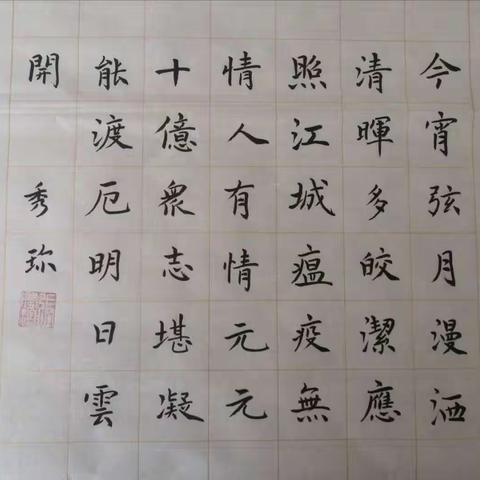 今宵弦月漫洒
清暉多皎潔應
照江城瘟疫無
情人有情元元
十億衆志堪凝
能渡厄明日雲
開 秀珎